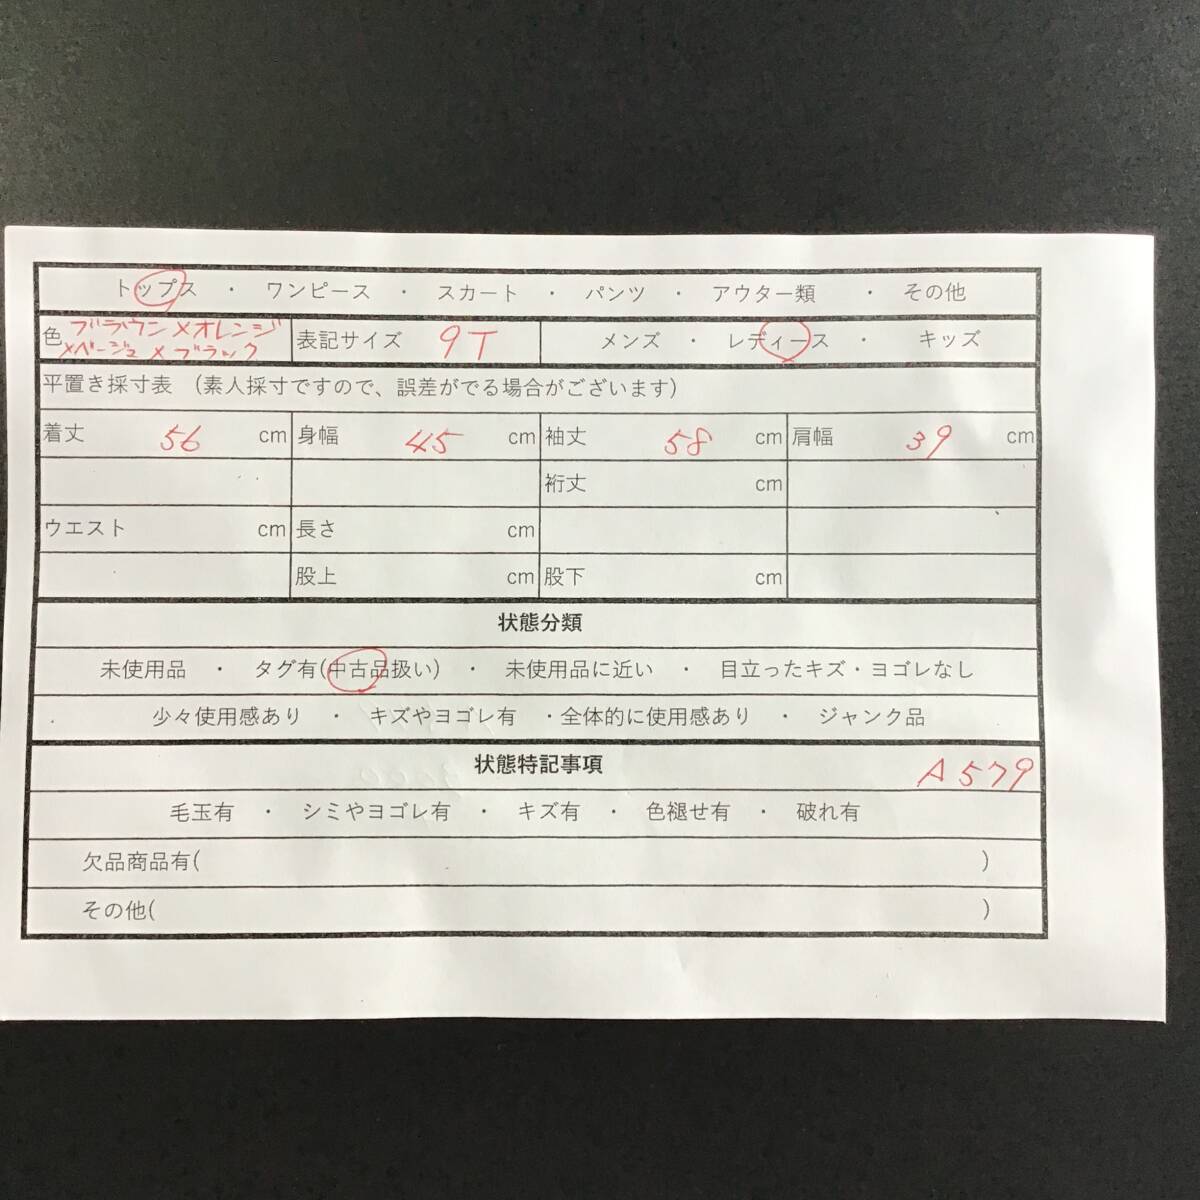 トップス ・ ワンピース ・ スカート ・ パンツ ・ アウター類 ・ その他
色 ブラウン×オレンジ×ベージュ×ブラック 表記サイズ 9T メンズ ・ レディース ・ キッズ
平置き採寸表 （素人採寸ですので、誤差がでる場合がございます）
着丈 56 cm 身幅 45 cm 袖丈 58 cm 肩幅 39 cm
裄丈 cm
ウエスト cm 長さ cm
股上 cm 股下 cm
状態分類
未使用品 ・ タグ有(中古品扱い) ・ 未使用品に近い ・ 目立ったキズ・ヨゴレなし
少々使用感あり ・ キズやヨゴレ有 ・全体的に使用感あり ・ ジャンク品
状態特記事項 A579
毛玉有 ・ シミやヨゴレ有 ・ キズ有 ・ 色褪せ有 ・ 破れ有
欠品商品有( )
その他( )